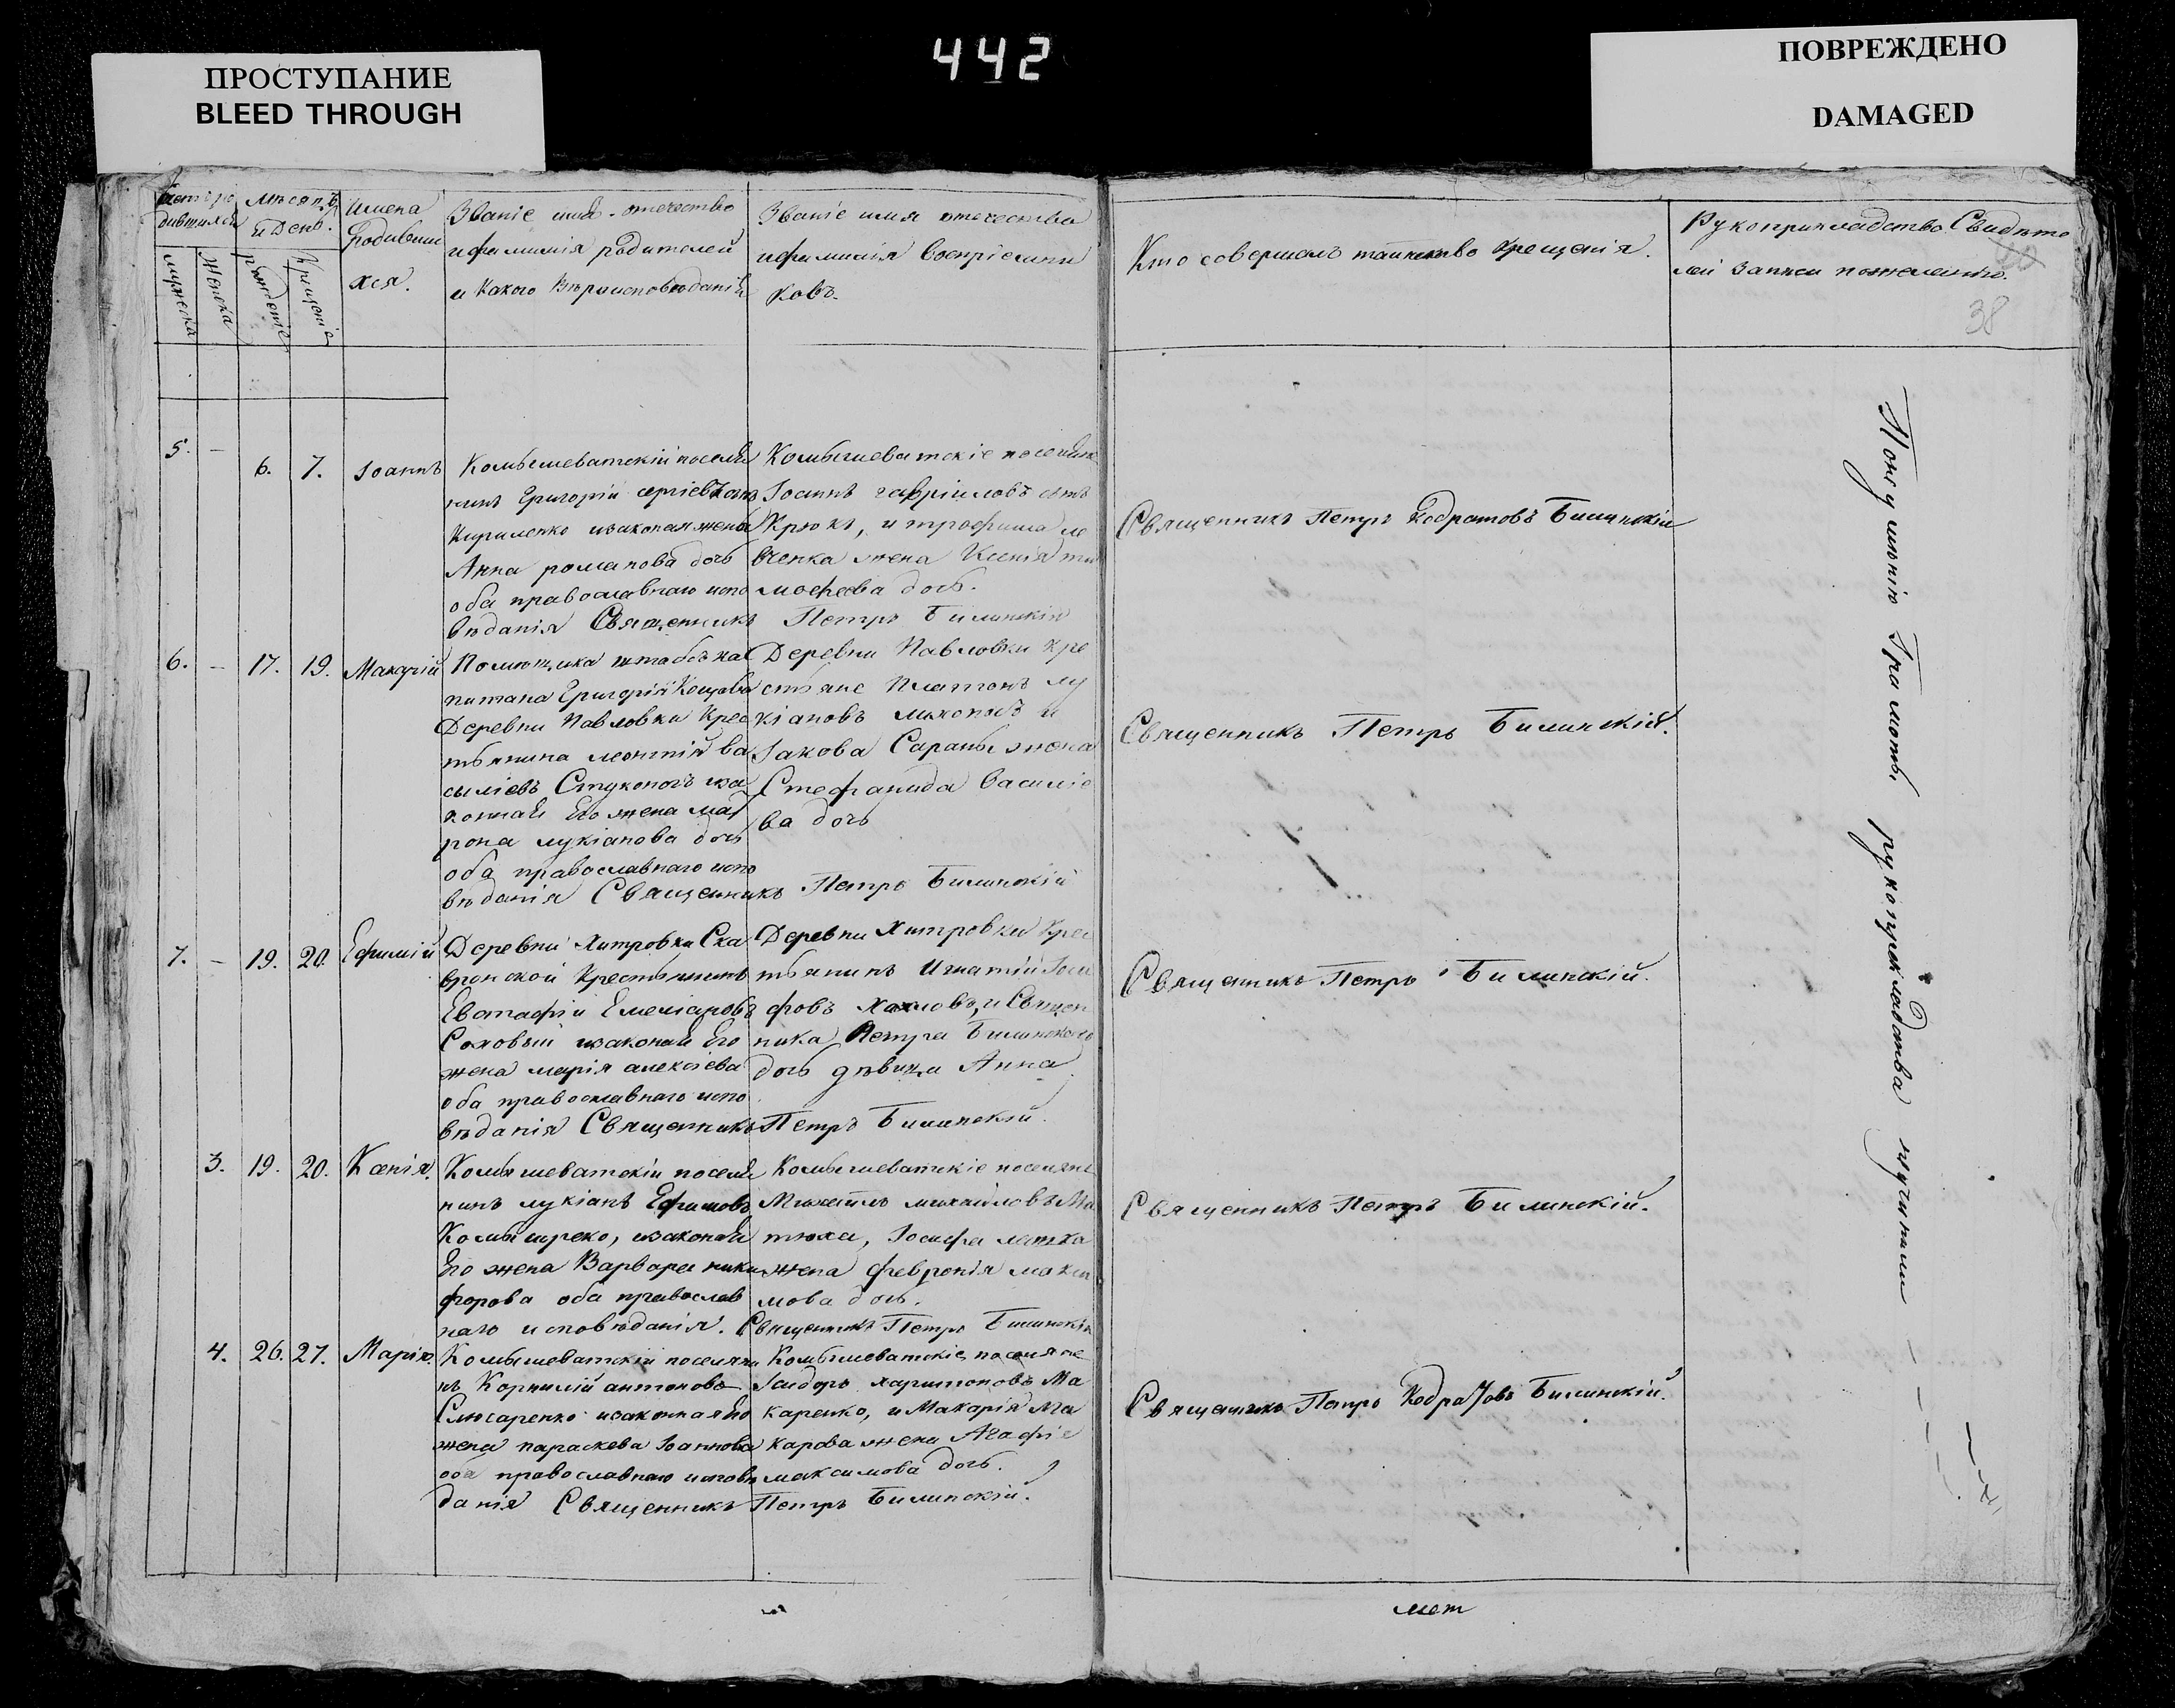 442
ПРОСТУПАНИЕ
BLEED THROUGH
ПОВРЕЖДЕНО
DAMAGED
мѣсяцъ
и День.
мужеска
женска
рожденіе
крещеніе
Имена
родивши
хся.
Званіе имя отечество
ифамилія родителей
и Какого Вѣроисповѣданія
Званіе имя отечества
ифамилія Воспріемни
ковъ.
Кто совершалъ таинство крещенія.
Рукоприкладство Свидѣте
лей записи пожеланію.
38
5. – 6. 7. Іоаннъ
Комышеватскій поселя
нинъ Григорій сергіевъ сынъ
Кириленко изаконая жена
Анна романова дочь
оба православнаго испо
вѣданія Священникъ Петръ Билинскій
Комышеватскіе поселяне
Іоаннъ гавріиловъ сынъ
Крюкъ, и трофима ле
вченка жена Ксенія ти
мофеева дочь.
Священникъ Петръ Кодратовъ Билинскій
6. – 17. 19. Макарій
Помѣщика штабсъ ка
питана Григорія
Деревни Павловки Крес
тьянина леонтія ва
сыліевъ Стуконогъ иза
коннай Его жена мат
рона лукіанова дочь
оба православнаго испо
вѣданія Священникъ Петръ Билинскій
Деревни Павловки кре
стьяне Платонъ лу
кіановъ и
Іакова Сараны жена
Стефанида Василіе
ва дочь
Священникъ Петръ Билинскій.
7. – 19. 20. Ефимій
Деревни Хитровки Ска
вронской Крестьянинъ
Евстафій Емеліановъ
изаконай Его
жена марія алексіева
оба православнаго испо
вѣданія Священникъ Петръ Билинскій.
Деревни Хитровки Крес
тьянинъ Игнатій Іоси
фовъ и Священ
ника Петра Билинскаго
дочь дѣвица Анна
Священникъ Петръ Билинскій.
3. 19. 20. Ксенія.
Комышеватскій поселя
нинъ лукіанъ Ефимовъ
изаконай
Его жена Варвара ники
форова оба православ
наго исповѣданія. Священникъ Петръ Билинскій
Комышеватскіе поселяне
Михаилъ михайловъ Ма
тюха, Іосифа
жена февронія макси
мова дочь.
Священникъ Петръ Билинскій.
4. 26. 27. Марія.
Комышеватскій поселяни
нъ Корнилій антоновъ
Слюсаренко изаконная Его
жена параскева Іоаннова
оба православнаго исповѣ
данія Священникъ Петръ Билинскій.
Комышеватскіе поселяне
Ісидоръ харитоновъ Ма
каренко, и Макарія Ма
карова жена Агафіе
максимова дочь.
Священникъ Петръ Кодратовъ Билинскій.
грамоты рукоприкладства